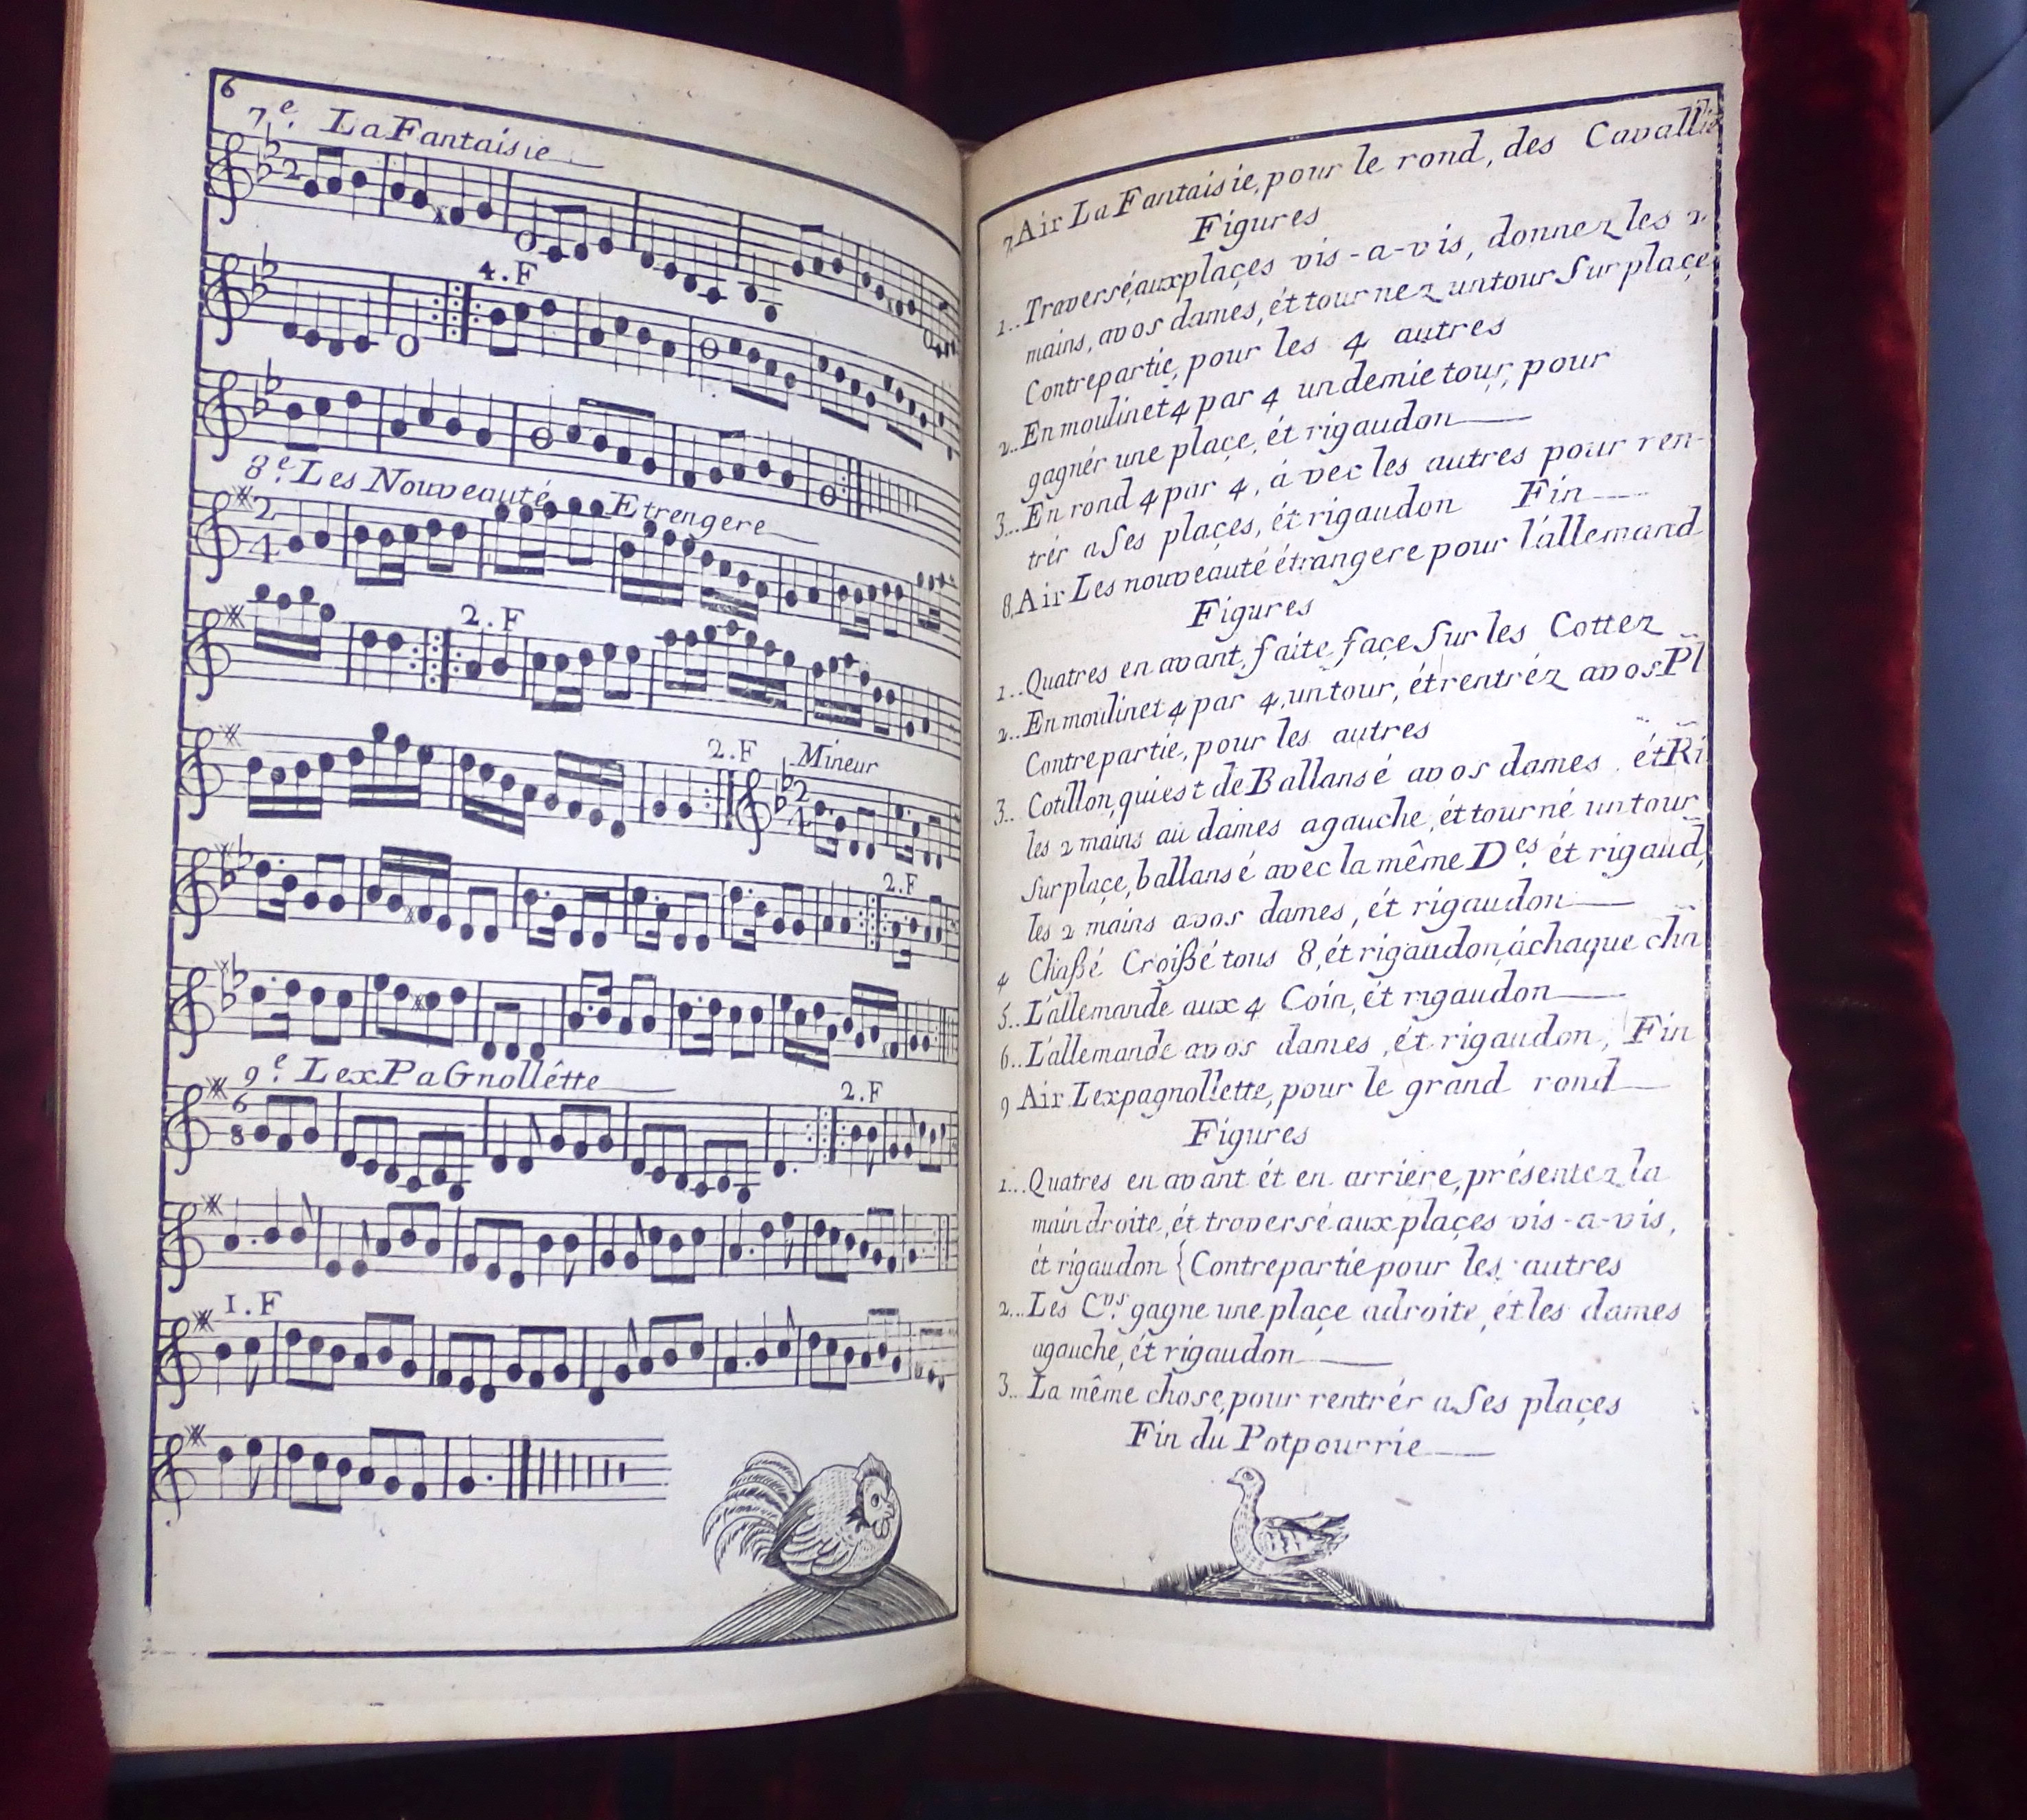 6
7.e La Fantaisie
2
4.F
8.e Les Nouveauté Etrengere
2
4
2.F
2.F Mineur
2
4
2.F
9.e LexPaGnollêtte
6
8
2.F
1.F
7. Air La Fantaisie, pour le rond, des
Figures
1.. Traversé, aux plaçes vis-a-vis, donnez les 2
mains, avos dames, ét tournez un tour Sur plaçe
Contrepartie, pour les 4 autres
2.. En moulinet 4 par 4 un demie tour, pour
gagnér une plaçe, ét rigaudon
3... En rond 4 par 4, à vec les autres pour ren-
trér a Ses plaçes, ét rigaudon Fin
8. Air Les nouveauté étrangere pour l'allemand
Figures
1.. Quatres en avant, faite façe Sur les Cottez
2.. En moulinet 4 par 4, un tour, ét rentréz avos Pl
Contrepartie, pour les autres
3.. Cotillon, qui est de Ballansé avos dames, ét Ri
les 2 mains aù dames agauche, ét tourné un tour
Sur plaçe, ballansé avec la même D.es ét rigaud,
les 2 mains avos dames, ét rigaudon
4 Chaßé Croißé tous 8, ét rigaudon, áchaque cha
5.. L'allemande aux 4 Coin, ét rigaudon
6.. L'allemande avos dames, ét rigaudon, Fin
9 Air Lexpagnollette, pour le grand rond
Figures
1... Quatres en avant ét en arriére, présentez la
main droite, ét traversé aux plaçes vis-a-vis,
ét rigaudon { Contrepartie pour les autres
2... Les C.vs gagne une plaçe adroite, ét les dames
agauche, ét rigaudon
3... La même chose, pour rentrér a Ses plaçes
Fin du Potpourrie